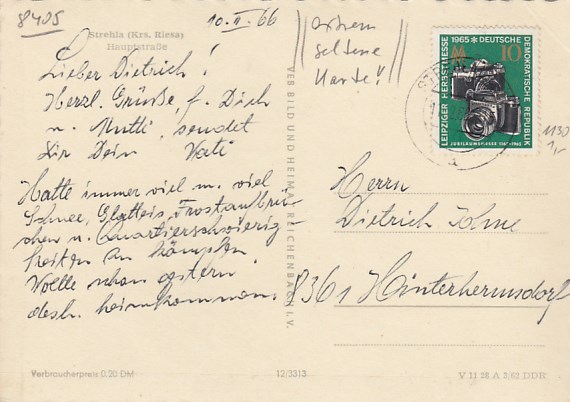 8405
Strehla (Krs. Riesa)
Hauptstraße
10.II.66
extrem
seltene
Karte!
Lieber Dietrich!
Herzl. Grüße, f. Dich
u. Mutti, sendet
Dir Dein Vati
Hatte immer viel m. viel
Schnee, Glatteis, Frostaufbrü-
chen u. Quartierschwierig-
keiten zu kämpfen.
Wollte schon gestern
desh. heimkommen.
VEB BILD UND HEIMAT REICHENBACH I. V.
LEIPZIGER HERBSTMESSE
1965 DEUTSCHE
DEMOKRATISCHE REPUBLIK
10
JUBILÄUMSMESSE 1165-1965
1130
1,-
Herrn
Dietrich
8361 Hinterhermsdorf
Verbraucherpreis 0.20 DM
12/3313
V 11 28 A 3/62 DDR